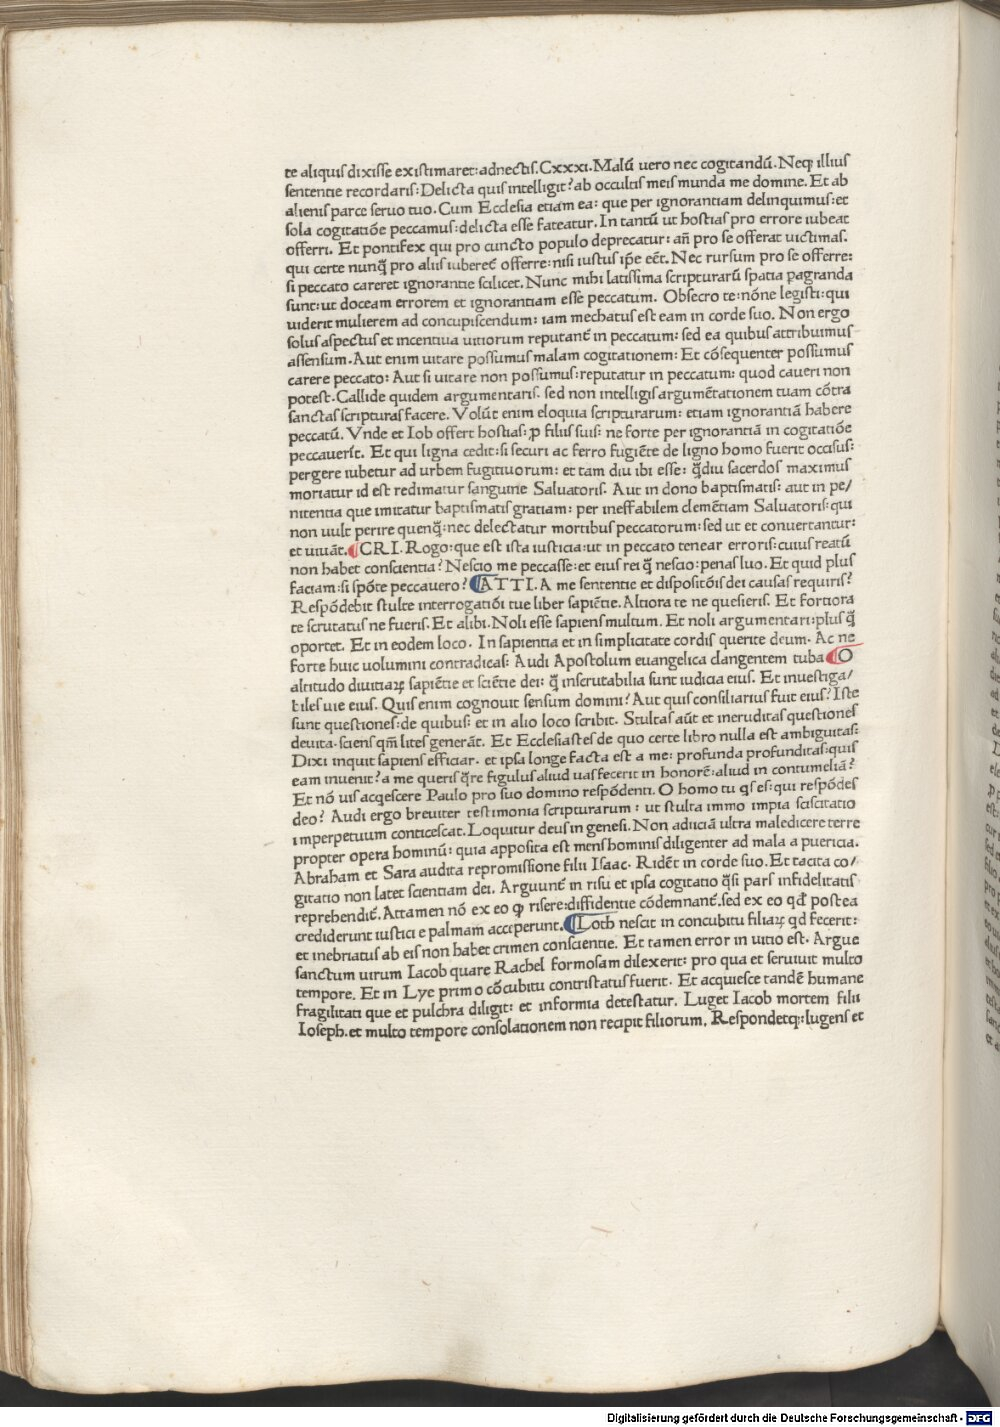 te aliquis dixisse existimaret: adnectis. Cxxxi. Malū uero nec cogitandū. Neq; illius
sententie recordaris: Delicta quis intelligit? ab occultis meis munda me domine. Et ab
alienis parce seruo tuo. Cum Ecclesia etiam ea: que per ignorantiam delinquimus: et
sola cogitatiõe peccamus: delicta esse fateatur. In tantū ut hostias pro errore iubeat
offerri. Et pontifex qui pro cuncto populo deprecatur: añ pro se offerat uictimas.
qui certe nunq̃ pro aliis iuberet̃ offerre: nisi iustus ip̃e eēt. Nec rursum pro se offerre:
si peccato careret ignorantie scilicet. Nunc mihi latissima scripturarū spatia pagranda
sunt: ut doceam errorem et ignorantiam esse peccatum. Obsecro te: nõne legisti: qui
uiderit mulierem ad concupiscendum: iam mechatus est eam in corde suo. Non ergo
solus aspectus et incentiua uitiorum reputant̃ in peccatum: sed ea quibus attribuimus
assensum. Aut enim uitare possumus malam cogitationem: Et cõsequenter possumus
carere peccato: Aut si uitare non possumus: reputatur in peccatum: quod caueri non
potest. Callide quidem argumentaris. sed non intelligis argumētationem tuam cõtra
sanctas scripturas facere. Volūt enim eloquia scripturarum: etiam ignorantiā habere
peccatū. Vnde et Iob offert hostias: ꝓ filiis suis: ne forte per ignorantiā in cogitatiõe
peccauerīt. Et qui ligna cedit: si securi ac ferro fugiēte de ligno homo fuerit occisus:
pergere iubetur ad urbem fugitiuorum: et tam diu ibi esse: q̃diu sacerdos maximus
moriatur id est redimatur sanguine Saluatoris. Aut in dono baptismatis: aut in pe/
nitentia que imitatur baptismatis gratiam: per ineffabilem clemētiam Saluatoris: qui
non uult perire quenq̃: nec delectatur mortibus peccatorum: sed ut et conuertantur:
et uiuāt. ¶CRI. Rogo: que est ista iusticia: ut in peccato tenear erroris: cuius reatū
non habet conscientia? Nescio me peccasse: et eius rei q̃ nescio: penas luo. Et quid plus
faciam: si spõte peccauero? ¶ATTI. A me sententie et dispositõis dei causas requiris?
Respõdebit stulte interrogatiõi tue liber sapiētie. Altiora te ne quesieris. Et fortiora
te scrutatus ne fueris. Et alibi. Noli esse sapiens multum. Et noli argumentari: plus q̃
oportet. Et in eodem loco. In sapientia et in simplicitate cordis querite deum. Ac ne
forte huic uolumini contradicas: Audi Apostolum euangelica clangentem tuba ¶O
altitudo diuitiaꝝ sapiētie et sciētie dei: q̃ inscrutabilia sunt iudicia eius. Et inuestiga/
biles uie eius. Quis enim cognouit sensum domini? Aut quis consiliarius fuit eius? Iste
sunt questiones: de quibus: et in alio loco scribit. Stultas aūt et ineruditas questiones
deuita. sciens qm̃ lites generāt. Et Ecclesiastes de quo certe libro nulla est ambiguitas:
Dixi inquit sapiens efficiar. et ipsa longe facta est a me: profunda profunditas: quis
eam inuenit? a me queris q̃re figulus aliud uas fecerit in honorē: aliud in contumeliā?
Et nõ uis acq̃escere Paulo pro suo domino respõdenti. O homo tu q̃s es: qui respõdes
deo? Audi ergo breuiter testimonia scripturarum: ut stulta immo impia sciscitatio
imperpetuum conticescat. Loquitur deus in genesi. Non adiiciā ultra maledicere terre
propter opera hominū: quia apposita est mens hominis diligenter ad mala a puericia.
Abraham et Sara audita repromissione filii Isaac. Ridēt in corde suo. Et tacita co/
gitatio non latet scientiam dei. Arguunt̃ in risu et ipsa cogitatio q̃si pars infidelitatis
reprehendit̃. Attamen nõ ex eo ꝙ risere: diffidentie cõdemnant̃. sed ex eo qd̃ postea
crediderunt iusticie palmam acceperunt. ¶Loth nescit in concubitu filiaꝝ qd̃ fecerit:
et inebriatus ab eis non habet crimen conscientie. Et tamen error in uitio est. Argue
sanctum uirum Iacob quare Rachel formosam dilexerit: pro qua et seruiuit multo
tempore. Et in Lye primo cõcubitu contristatus fuerit. Et acquiesce tandē humane
fragilitati que et pulchra diligit: et informia detestatur. Luget Iacob mortem filii
Ioseph. et multo tempore consolationem non recipit filiorum. Respondetq;: lugens et
Digitalisierung gefördert durch die Deutsche Forschungsgemeinschaft - DFG